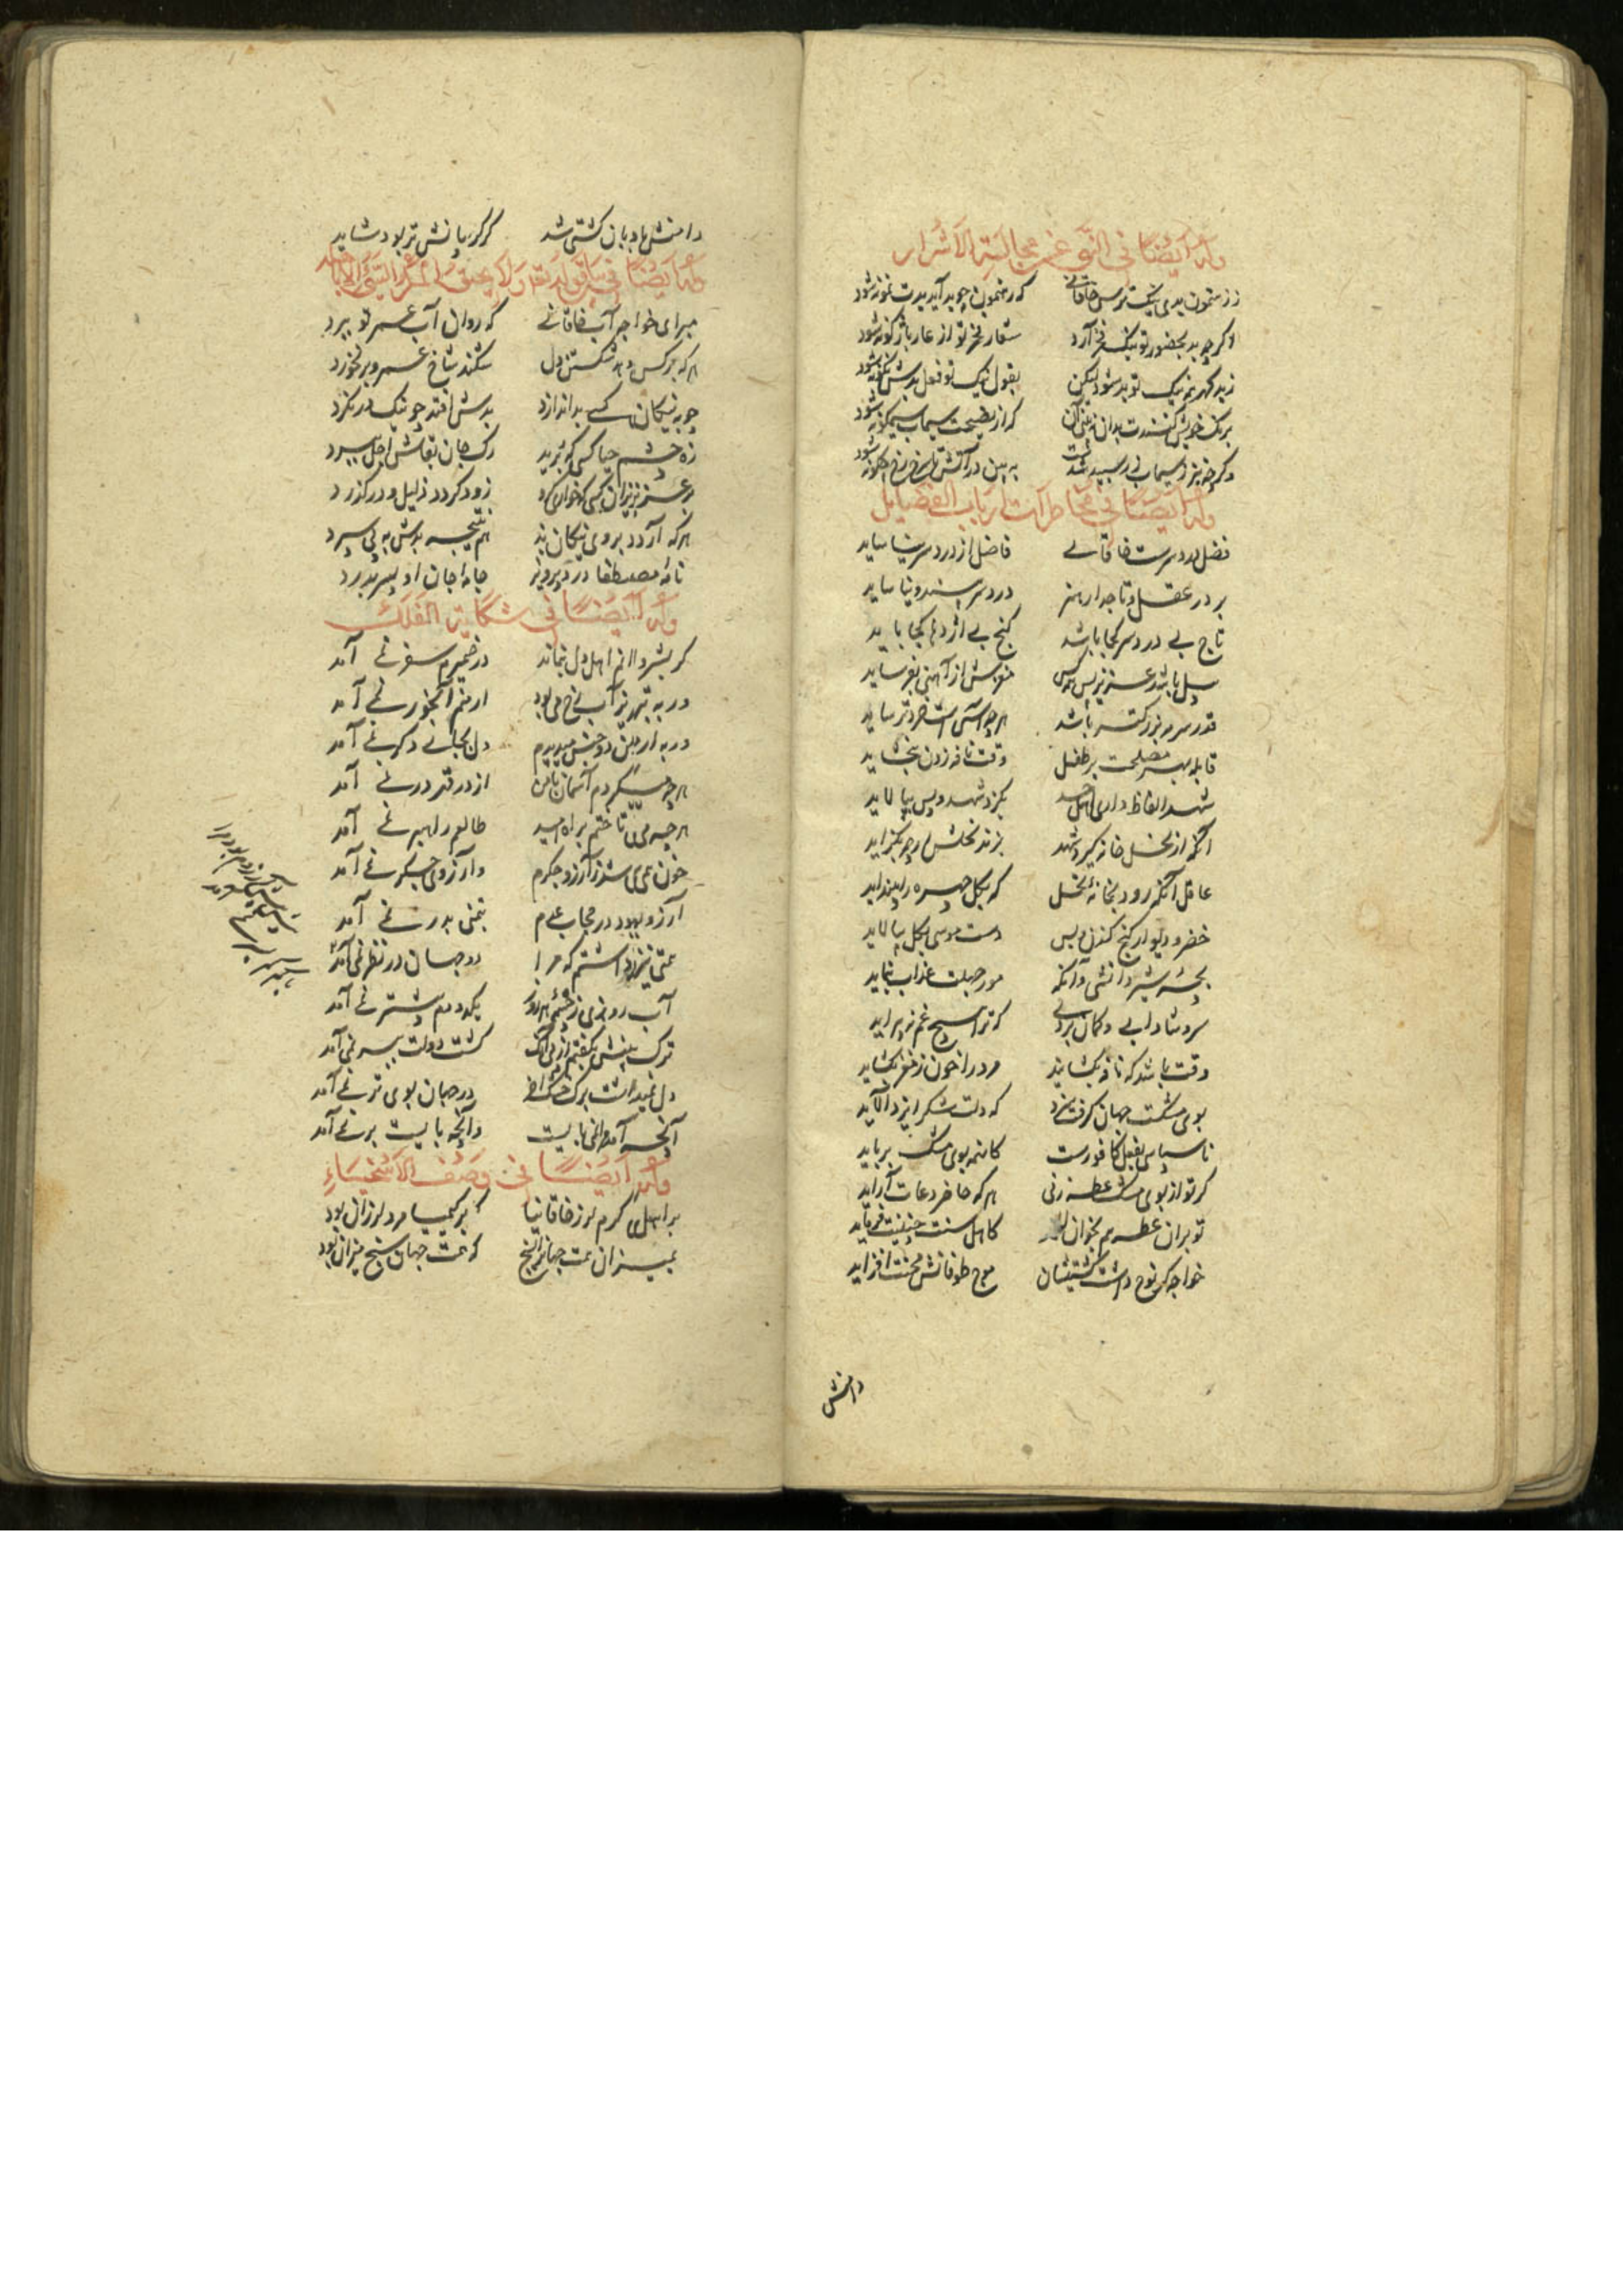 وله ایضا فی النهی عن مجالسة الاشرار
ز رهنمون بدی نیک ترس خاقانی که رهنمون چو بد آید بدت نمونه شود
اگر چو بد بحضور تو نیک فخر آرد شعار فخر تو از عار باژگونه شود
ز بد گهر نیک تو بد شود لیکن بقول نیک تو فعل بدش نکونه شود
برنک خویش کنندت بدان که از نصیحت سیماب سیم گونه شود
وگر چه نیز ز سیماب زر سپید شدست ببین در آتش تا سرخ رخ چگونه شود
وله ایضا فی مخاطرات ارباب الفضایل
فضل درد سرست خاقانی فاضل از درد سر نیاساید
بر در عقل و تاجدار هنر درد سر بیند و نیاساید
تاج بی درد سر کجا باشد گنج بی اژدها کجا باید
پیل باشد عزیز پس همه کس مغزش از آهنی بفرساید
قدر سرمه بزرگتر باشد هر چه آسیاش خردتر ساید
قابله بهر مصلحت بر طفل وقت نافه زدن نبخشاید
شهد الفاظ داری اهل حسد بگزد شهد و پس بیالاید
آنکه از نخل خانه گیرد شهد بزند نحلش ار چه بگزاید
عاقل آنگه رود بخانه نحل که بگل چهره را بینداید
خضر و دیوار گنج کندن و بس دست موسی بگل بیالاید
بچه شیر دانشی وانگه مور جهلت عذاب ننماید
سرو شادابی و گمان بردی که ترا هیچ غم نپیراید
وقت باشد که نافه بگشایند مرد را خون ز مغز بگشاید
بوی مشکت جهان گرفت سزد که دلت شکر ایزد آراید
ناسپاسی بفعل کافورست کانهمه بوی مشک برباید
گر تو از بوی مشک عطسه زنی هر که حاضر دعات آراید
تو بر آن عطسه هم بخوان الحمد کاهل سنت چنینت فرماید
خواجه کی نوح داشت کشتیشان موج طوفانش محنت افزاید
دامنش
دامنش بادبان کشتی شد گر گریبانش تر بود شاید
وله ایضا فی سیاق قوله تعالی ولا یحیق المکر السیئ الا باهله
مبر ای خواجه آب خاقانی که روان آب عمر تو ببرد
هر که بر کس دهد شکستن دل شکند شاخ عمر و بر نخورد
چو به نیکان کسی بد اندازد بدش افتد چو نیک درنگرد
زه چشم حیا کسی که برید رگ جان بقاش اجل ببرد
بر عزیزان کسی که خواری کرد زود گردد ذلیل و درگذرد
هر که آرد بروی نیکان بد هم نتیجه بدش به پی سپرد
نامه مصطفا درد پرویز جامه جان او پسر بدرد
وله ایضا فی شکایة الفلک
گر بشروان اهل دل نماند در ضمیرم سفر نمی آمد
ور به تبریز آب رخ می بود ارمنم آبخور نمی آمد
ور به ارمن دو جنس میدیدم دل بجای دگر نمی آمد
هر چه میکردم آسمان با من از در قدر در نمی آمد
هر چه می تاختم براه امید طالعم راهبر نمی آمد
خون همی شد ز آرزو جگرم و آرزوی جگر نمی آمد
آرزو بود در حجاب عدم بتمنی بدر نمی آمد
همتی نیز داشتم که مرا دو جهان در نظر نمی آمد
آب روزی ز چشمه هر روز یکدو دم بیشتر نمی آمد
ترک بیشی بگفتم از پی آنک کشت دولت ببر نمی آمد
دل نمیداشت برگ خشک آخر در جهان بوی تر نمی آمد
آنچه آمد مرا نمی بایست وانچه بایست بر نمی آمد
وله ایضا فی وصف الاسخیاء
بر اهل کرم لرز خاقانیا که بر کیمیا مرد لرزان بود
بمیزان همت جهانرا بسنج که همت جهان سنج میزان بود